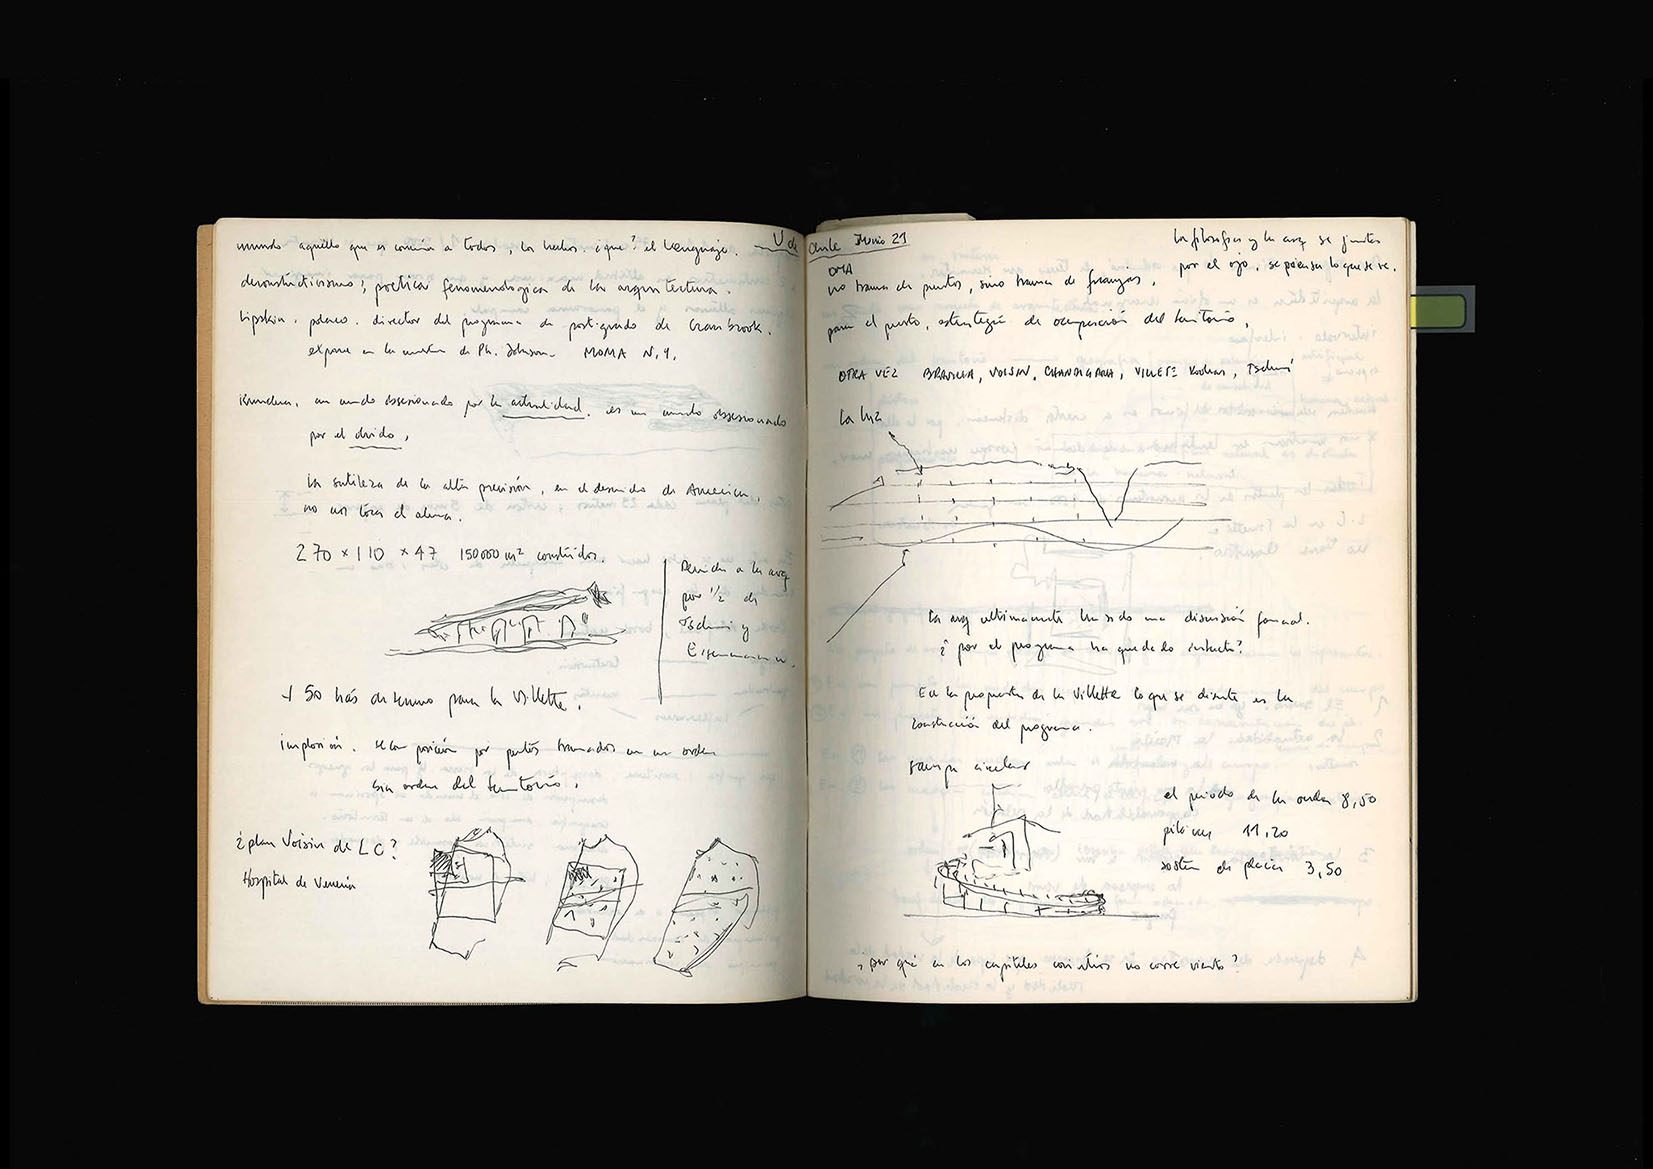 mundo aquello que es común a todos, los hechos. ¿que? el lenguaje.
deconstructivismo; poética fenomenológica de la arquitectura.
Lipskin. polaco. director del programa de postgrado de Cranbrook.
expone en la muestra de Ph. Johnson. MOMA N.Y.
Kundera, un mundo obsesionado por la actualidad. es un mundo obsesionado
por el olvido,
La sutileza de la alta precisión, en el desnudo de America,
no nos toca el alma.
270 x 110 x 47 150000 m² construidos.
a la arq
por 1/2 de
Tschumi y
Eisenman
50 hás de terreno para la Villette.
implosión. se con posición por puntos tramados en un orden
sin orden del territorio.
¿plan Voisin de LC?
Hospital de Venecia
U de Chile Junio 21
La filosofía y la arq se juntan
por el ojo, se piensa lo que se ve.
OMA
no trama de puntos, sino trama de franjas,
para el punto, estrategia de ocupación del territorio,
OTRA VEZ BRASILIA, VOISIN, CHANDIGARH, VILLETE Koolhas, Tschumi
La luz
La arq ultimamente ha sido una discusión formal.
¿por el programa ha quedado intacto?
En la propuesta de la Villette lo que se discute es la
construcción del programa.
rampa circular
el periodo de la ondas 8,50
pilares 11,20
sosten de placa 3,50
¿por qué en los capiteles corintios no corre viento?